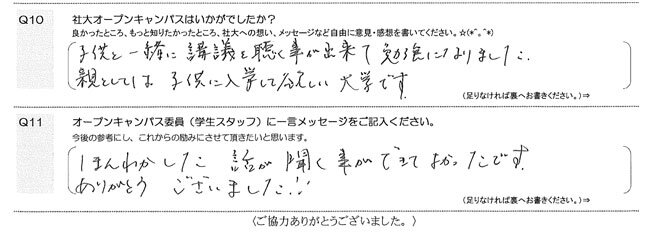 Q10 社大オープンキャンパスはいかがでしたか？
良かったところ、もっと知りたかったところ、社大への想い、メッセージなど自由に意見・感想を書いてください。☆(*^_^*)
子供と一緒に講義を聴く事が出来て勉強になりました。
親としては、子供に入学して欲しい大学です
(足りなければ裏へお書きください。)⇒
Q11 オープンキャンパス委員（学生スタッフ）に一言メッセージをご記入ください。
今後の参考にし、これからの励みにさせて頂きたいと思います。
ほんわかした 話が聞く事ができてよかったです。
ありがとう ございました!!
(足りなければ裏へお書きください。)⇒
〈ご協力ありがとうございました。〉